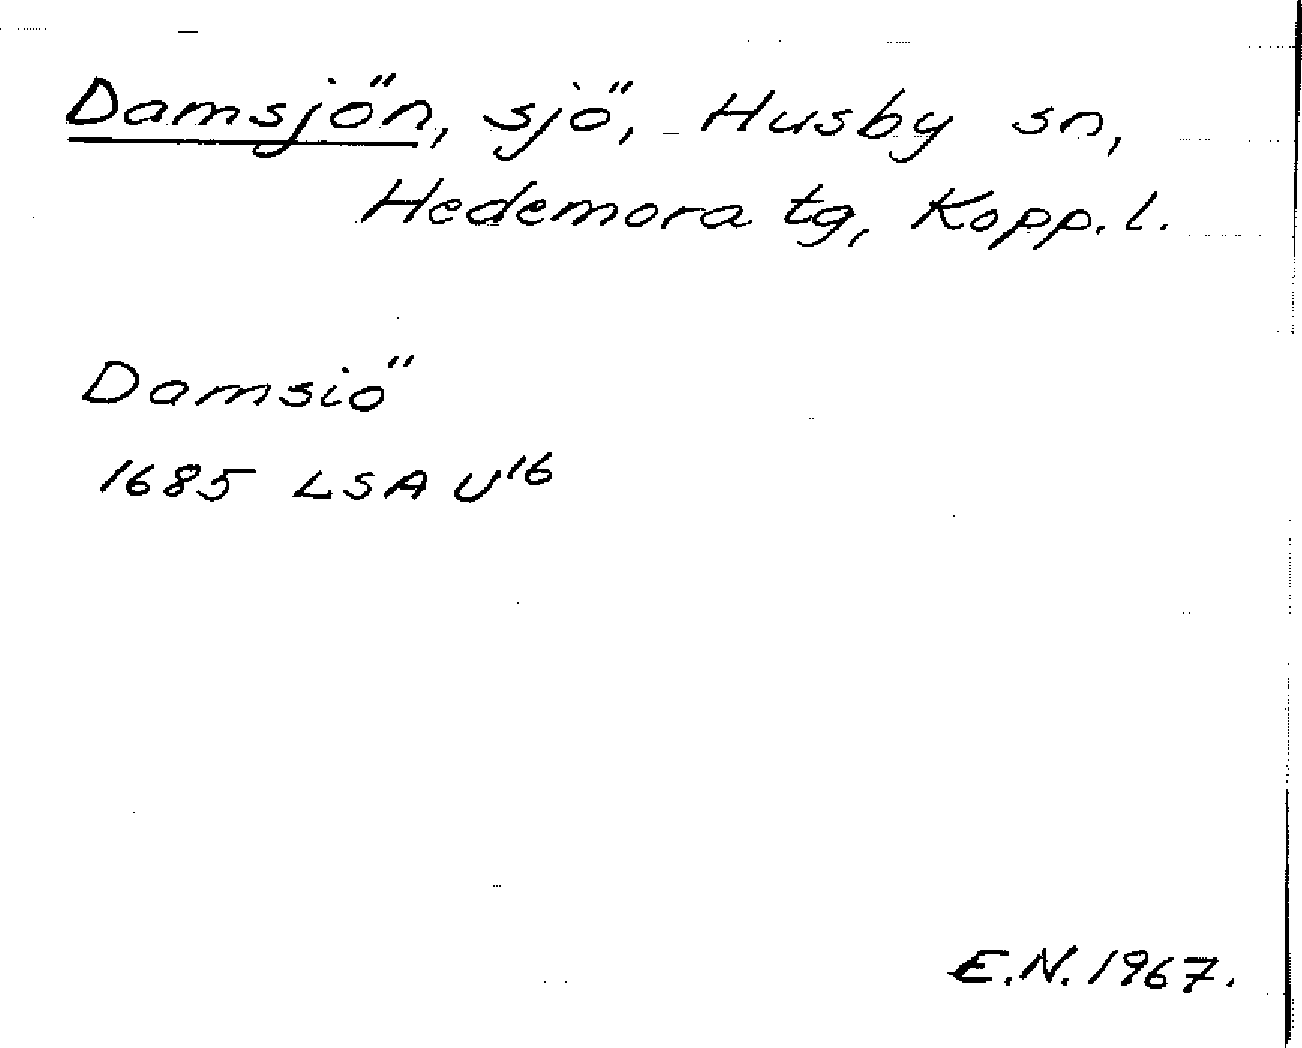 Damsjön, sjö, Husby sn,
Hedemora tg, Kopp. l.
Damsiö
1685 LSA U16
E.N. 1967.